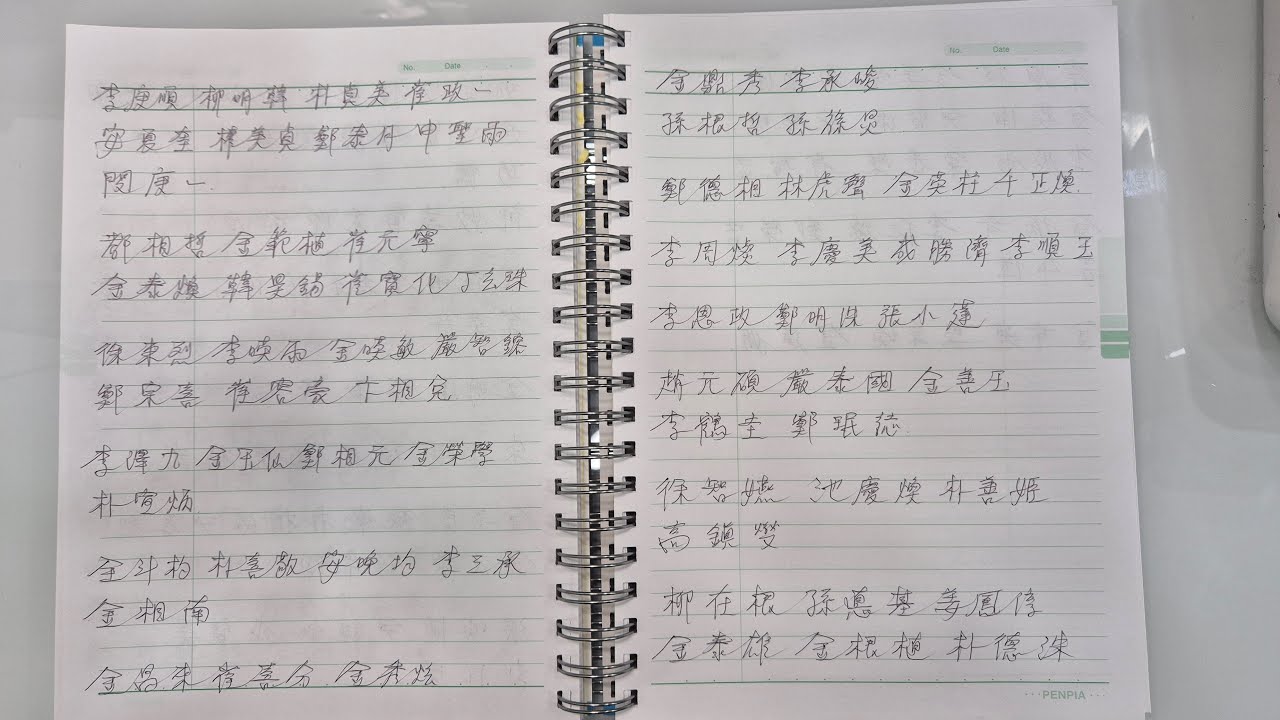 No. Date
李庚順 柳明韓 朴貞美 崔政一
安夏奎 權美貞 鄭泰月 申聖雨
閔庚一
都相哲 金範植 崔元寧
金泰煥 韓旻錫 崔寶化 丁玄珠
徐東烈 李暎雨 金暎敏 嚴智鎔
鄭宗善 崔容豪 卞相兌
李澤九 金玉仙 鄭相元 金榮學
朴宜炳
金斗杓 朴喜敬 安晩均 李之承
金相倫
金昌來 崔喜分 金秀炫
No. Date
金鼎秀 李承晙
孫根哲 孫
鄭德相 林虎 金英柱 千正煥
李周煥 李慶美 成勝濟 李順玉
李恩政 鄭明洙 張小蓮
趙元碩 嚴泰國 金善玉
李鶴圭 鄭珉
徐智嬿 池慶煥 朴善姬
高鎭燮
柳在根 孫惠基 姜鳳佳
金泰雄 金根植 朴德洙
PENPIA